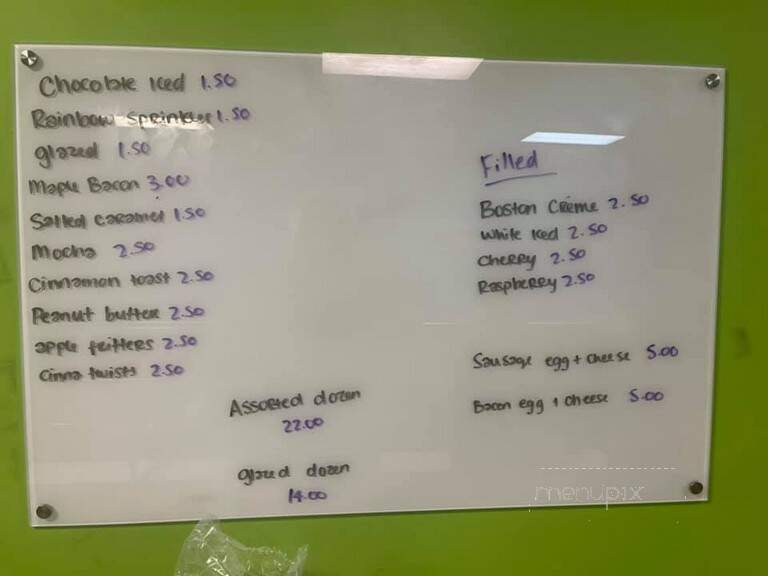 Chocolate Iced 1.50
Rainbow Sprinkles 1.50
glazed 1.50
Maple Bacon 3.00
Salted caramel 1.50
Mocha 2.50
Cinnamon toast 2.50
Peanut butter 2.50
apple fritters 2.50
Cinna twists 2.50
Assorted dozen
22.00
glazed dozen
14.00
Filled
Boston Creme 2.50
White Iced 2.50
Cherry 2.50
Raspberry 2.50
Sausage egg + cheese 5.00
Bacon egg + cheese 5.00
menupix